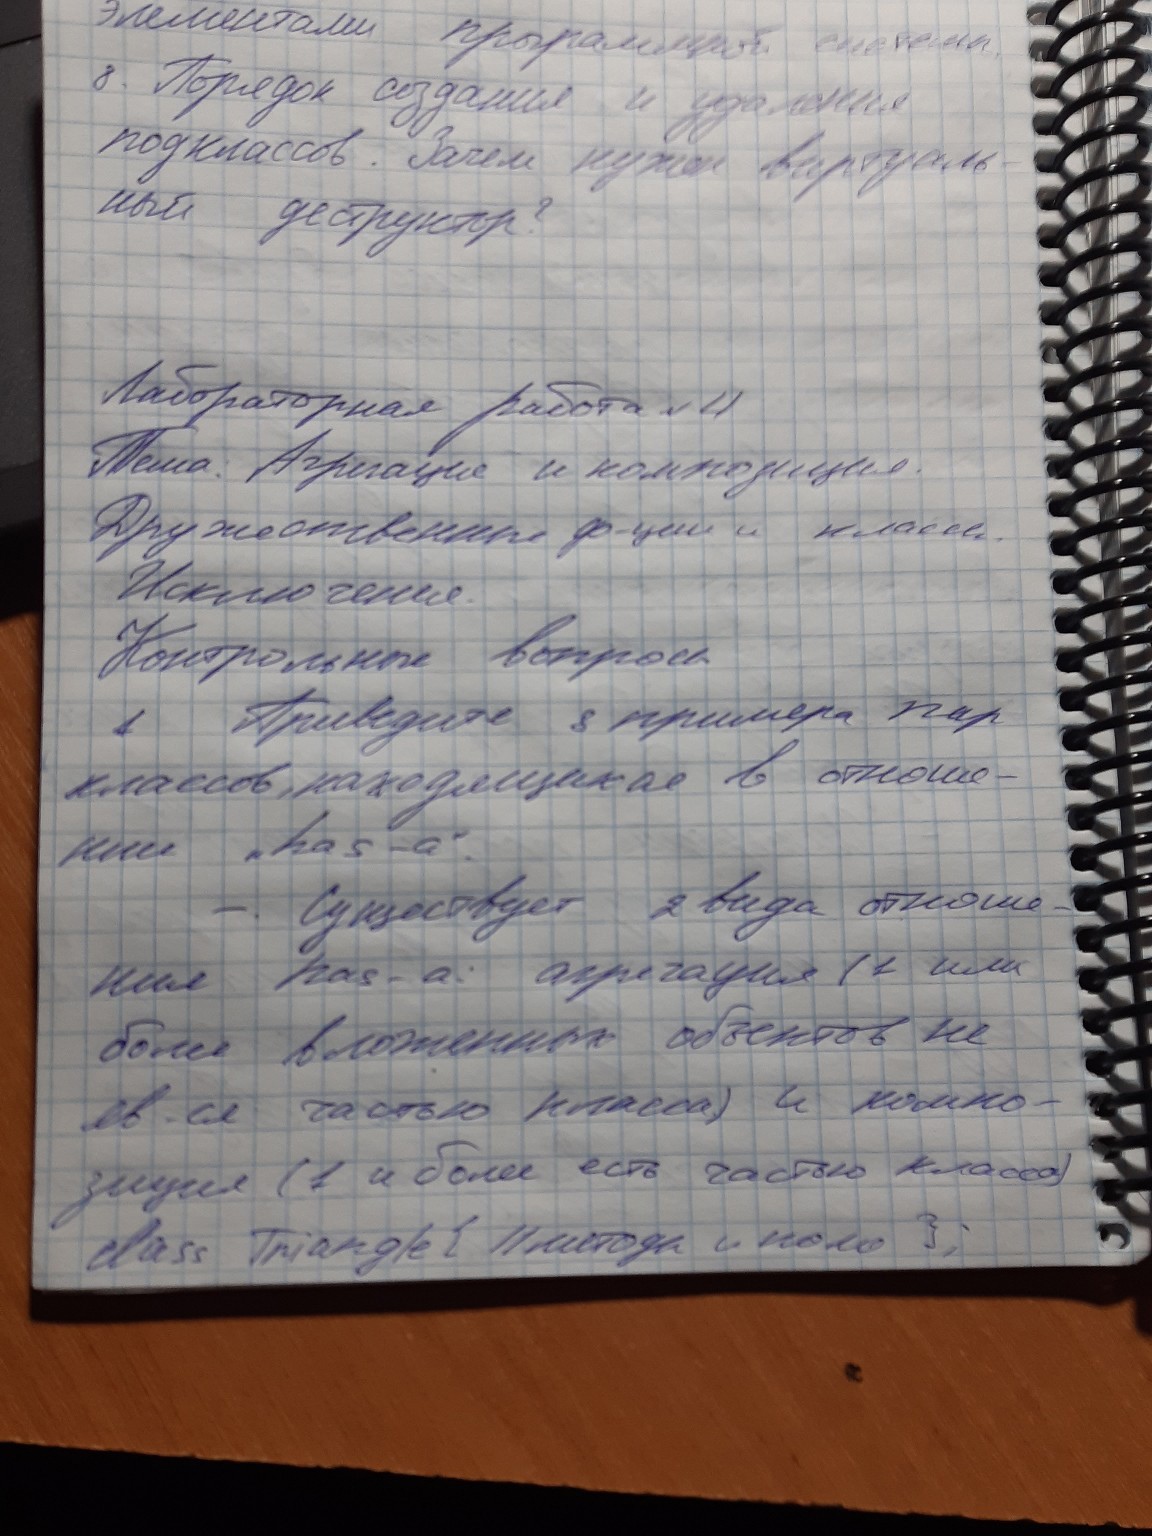 элементами программной системы.
8. Порядок создания и удаления
подклассов. Зачем нужен виртуаль-
ный деструктор?
Лабораторная работа №4
Тема: Агрегация и композиция.
Дружественные ф-ции и классы.
Исключения.
Контрольные вопросы
1 Приведите 3 примера пар
классов, находящихся в отноше-
нии "has-a".
-. Существует 2 вида отноше-
ния has-a: агрегация (1 или
более вложенных объектов не
яв-ся частью класса) и компо-
зиция (1 и более есть частью класса)
class Triangle { // методы и поля };